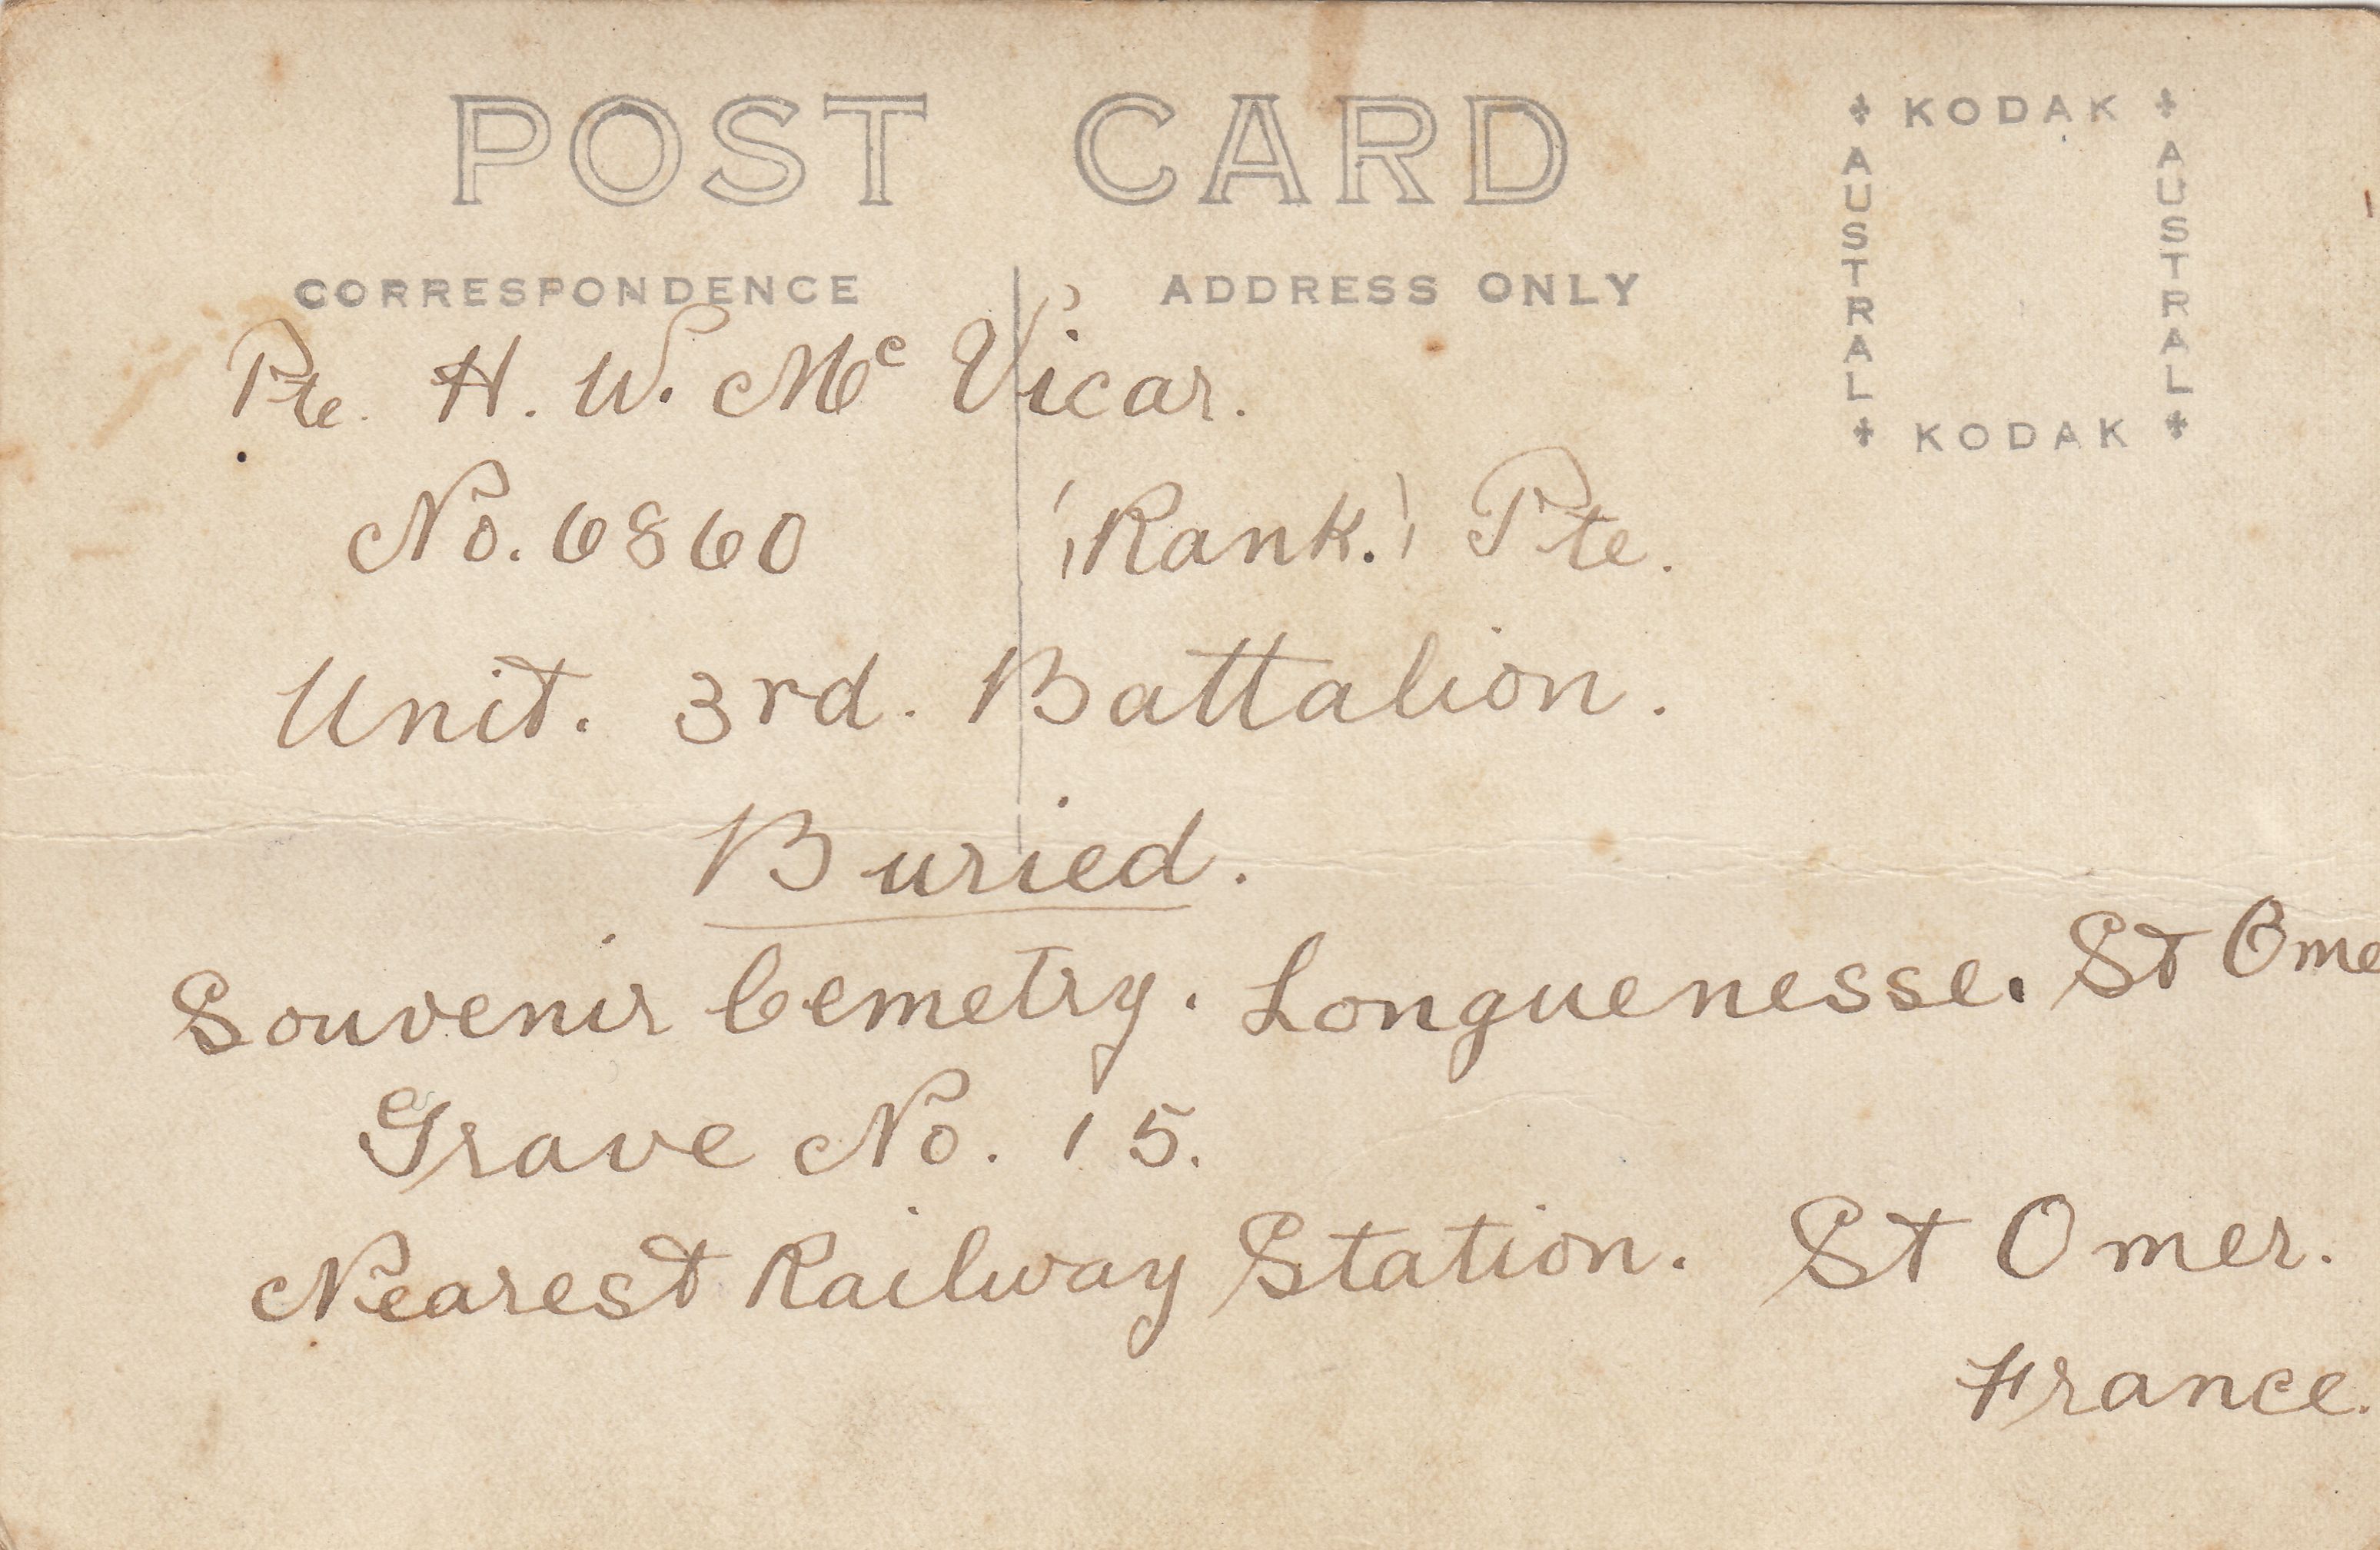 POST CARD
CORRESPONDENCE
ADDRESS ONLY
KODAK
AUSTRAL
AUSTRAL
KODAK
Pte. H. W. Mc Vicar.
No. 6860 (Rank.) Pte.
Unit. 3rd. Battalion.
Buried.
Souvenir Cemetry. Longuenesse. St Ome
Grave No. 15.
Nearest Railway Station. St Omer.
France.